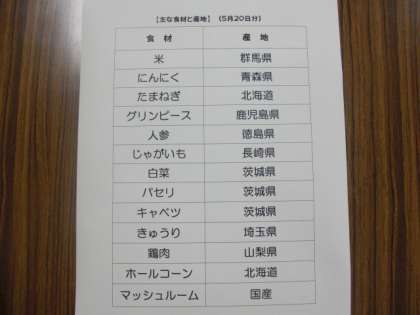 【主な食材と産地】 (5月20日分)
食 材 産 地
米 群馬県
にんにく 青森県
たまねぎ 北海道
グリンピース 鹿児島県
人参 徳島県
じゃがいも 長崎県
白菜 茨城県
パセリ 茨城県
キャベツ 茨城県
きゅうり 埼玉県
鶏肉 山梨県
ホールコーン 北海道
マッシュルーム 国産